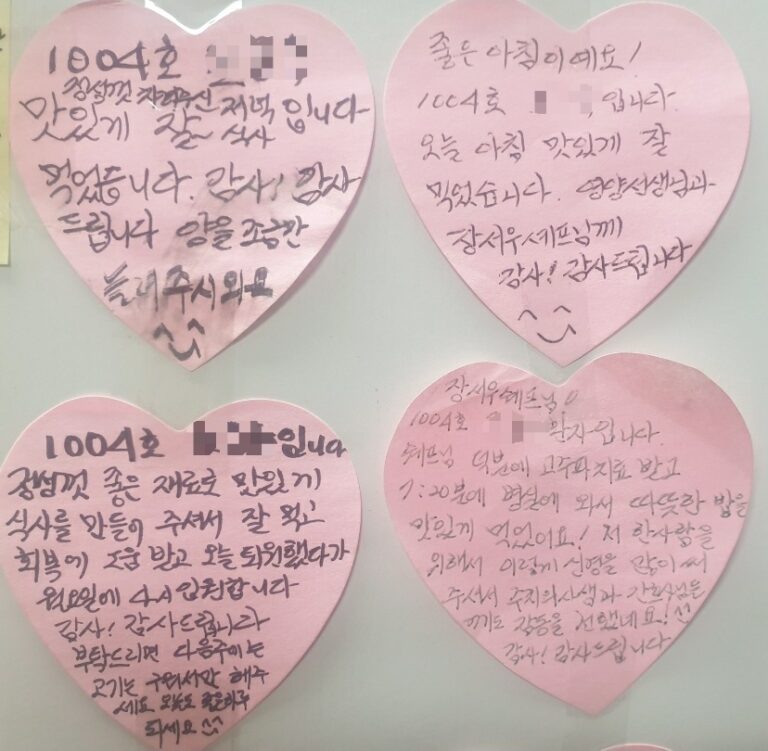 1004호
정성껏 차려주신
맛있게 잘 저녁 식사 입니다
먹었습니다. 감사! 감사
드립니다 양을 조금만
늘려주시와요
좋은 아침이예요!
1004호 입니다.
오늘 아침 맛있게 잘
먹었습니다. 영양선생님과
장서우셰프님께
감사! 감사드립니다
1004호 입니다
정성껏 좋은 재료로 맛있게
식사를 만들어 주셔서 잘 먹고
회복에 도움 받고 오늘 퇴원했다가
월요일에 입원합니다
감사! 감사드립니다
부탁드리면 다음주에는
고기는 구워서만 해주
세요 오늘도 좋은하루
되세요
장서우셰프님
1004호 환자입니다.
셰프님 덕분에 고주파치료 받고
7:20분에 병실에 와서 따뜻한 밥을
맛있게 먹었어요! 저 한사람을
위해서 이렇게 신경을 많이 써
주셔서 주치의사생과 간호사님들
께도 감동을 전했네요!
감사! 감사드립니다